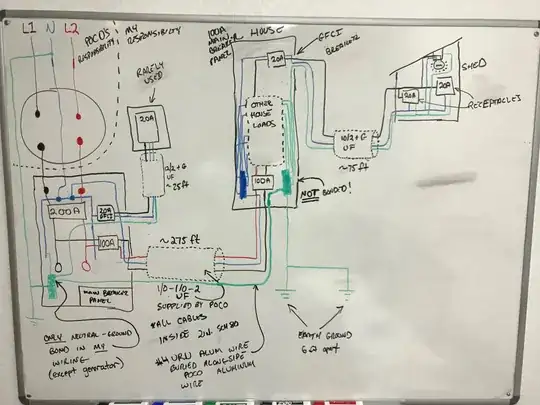 L1 N L2
POCO'S
RESPONSIBILITY
MY
RESPONSIBILITY
RARELY
USED
20A
12/2+G
UF
~25ft
200A
20A
GFCI
100A
MAIN BREAKER
PANEL
ONLY NEUTRAL-GROUND
BOND IN MY
WIRING
(except generator)
~275 ft
1/0-1/0-2
UF
SUPPLIED BY POCO
*ALL CABLES
INSIDE 2in. SCH 80
ALUM WIRE
BURIED ALONG-SIDE
POCO ALUMINUM
WIRE
100A
MAIN
BREAKER
PANEL
HOUSE
20A
GFCI
BREAKER
OTHER
HOUSE
LOADS
100A
NOT BONDED!
EARTH GROUND
6ft apart
10/2+G
UF
~75ft
SHED
20A
20A
RECEPTACLES